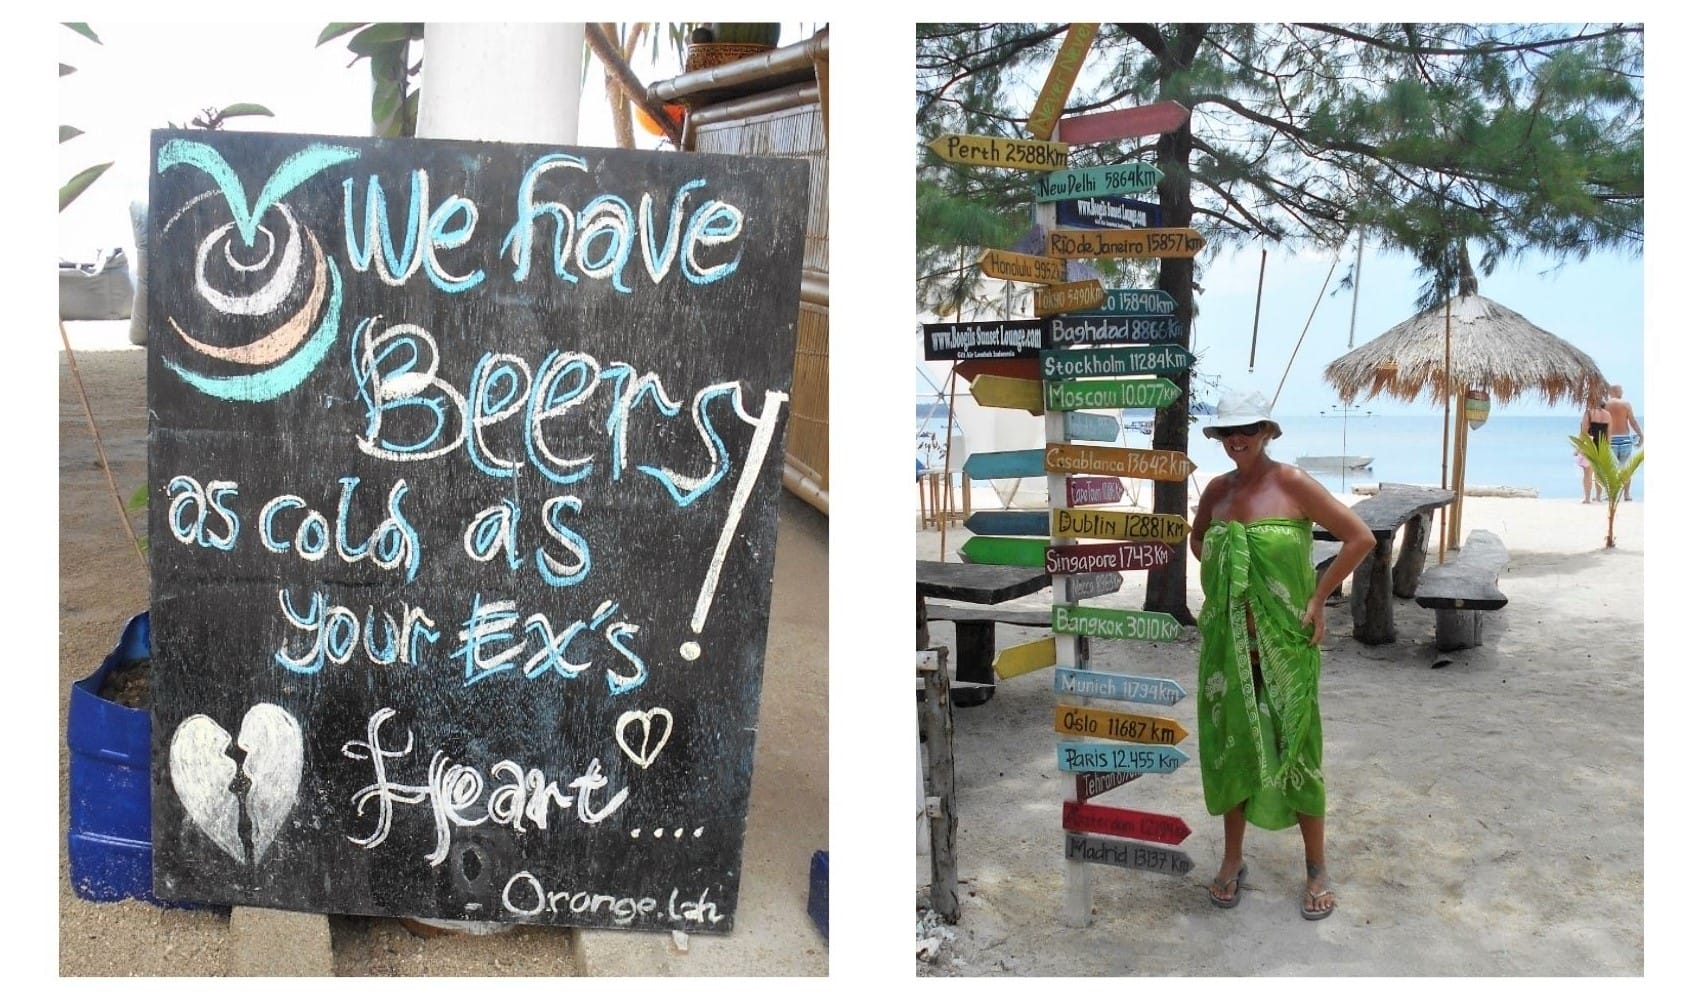 We have
Beers!
as cold as
your Ex's
Heart ....
Orange.lah
Never Never
Perth 2588Km
New Delhi 5864Km
www.Boogils Sunset Lounge.com
Rio de Janeiro 15857Km
Honolulu
Tokyo 5490Km
15840Km
www.Boogils Sunset Lounge.com
Gili Air Lombok Indonesia
Baghdad 8866Km
Stockholm 11284Km
Moscow 10.077Km
Casablanca 13642Km
Cape Town
Dublin 12881Km
Singapore 1743Km
Mecca
Bangkok 3010Km
Munich 11794Km
Oslo 11687 Km
Paris 12.455 Km
Tehran
Amsterdam
Madrid 13137 Km